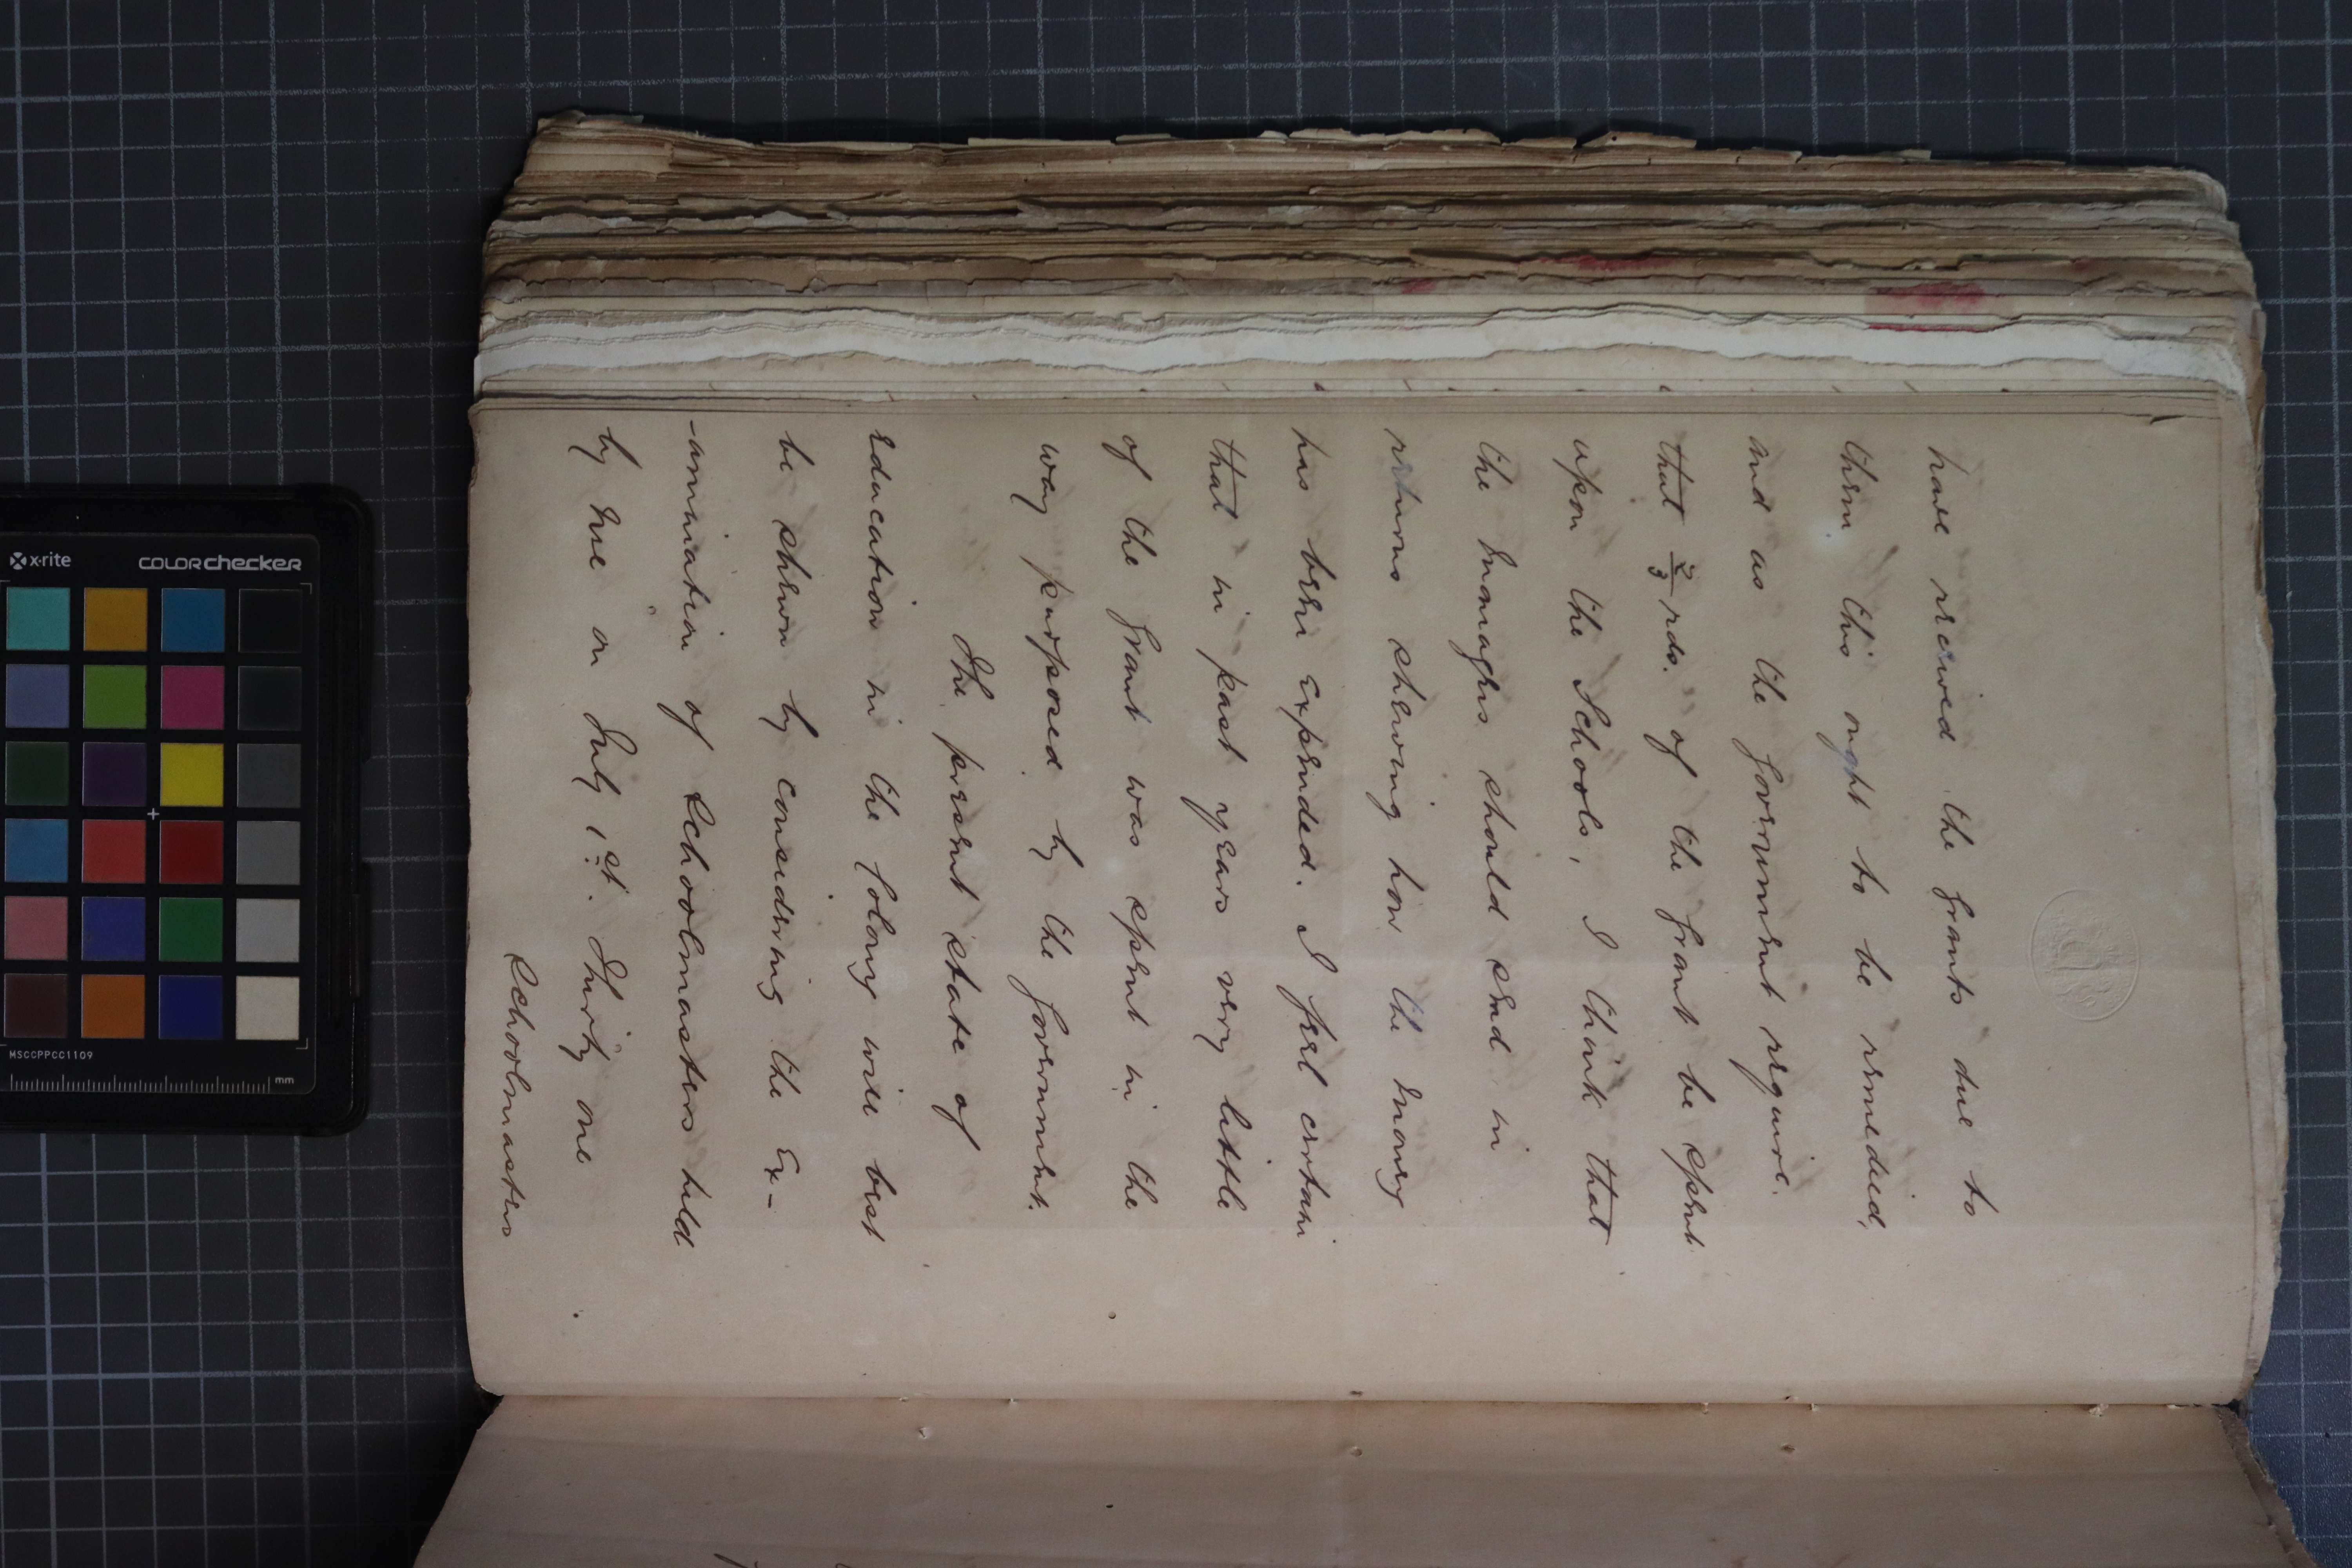 have received the grants due to
them this ought to be remedied,
and as the Government require.
that 2/3 rds. of the Grant be spent
upon the Schools, I think that
the Managers should send in
returns shewing how the money
has been expended. I feel certain
that in past years very little
of the Grant was spent in the
way purposed by the Government.
The present state of
education in the Colony will best
be shewn by considering the Ex-
-amination of Schoolmasters held
by me on July 1st. Thirty one
Schoolmasters
x·rite
COLORchecker
MSCCPPCC1109
mm